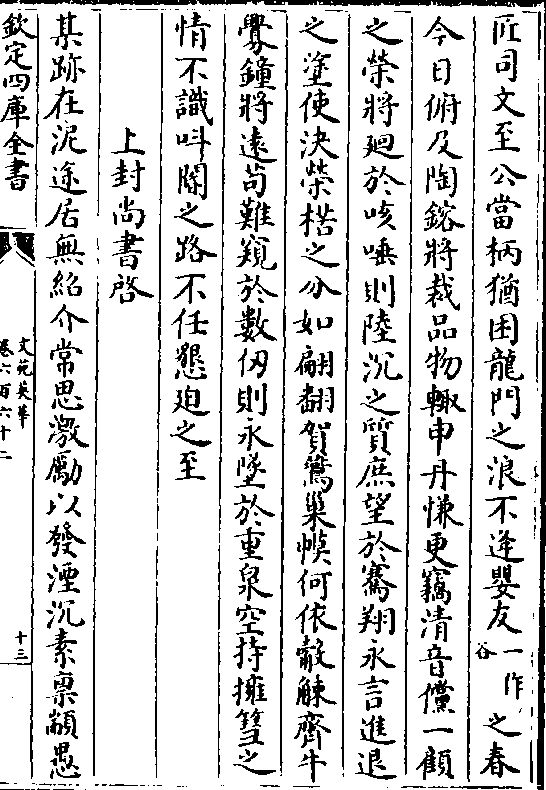 匠司文至公當柄猶困龍門之浪不逢嬰友一作谷之春
今日俯及陶鎔將裁品物輙申丹慊更竊清音儻一顧
之榮將廻於咳唾則陸沉之質庶望於騫翔永言進退
之塗使決榮楛之分如翩翻賀鷰巢幙何依觳觫齊牛
釁鐘將遠茍難窺於數仭則永墜於重泉空持擁篲之
情不識呌閽之路不任懇廹之至
上封尚書啓
某跡在泥途居無紹介常思激勵以發湮沉素禀顓愚
欽定四庫全書
文苑英華
卷六百六十二
十三